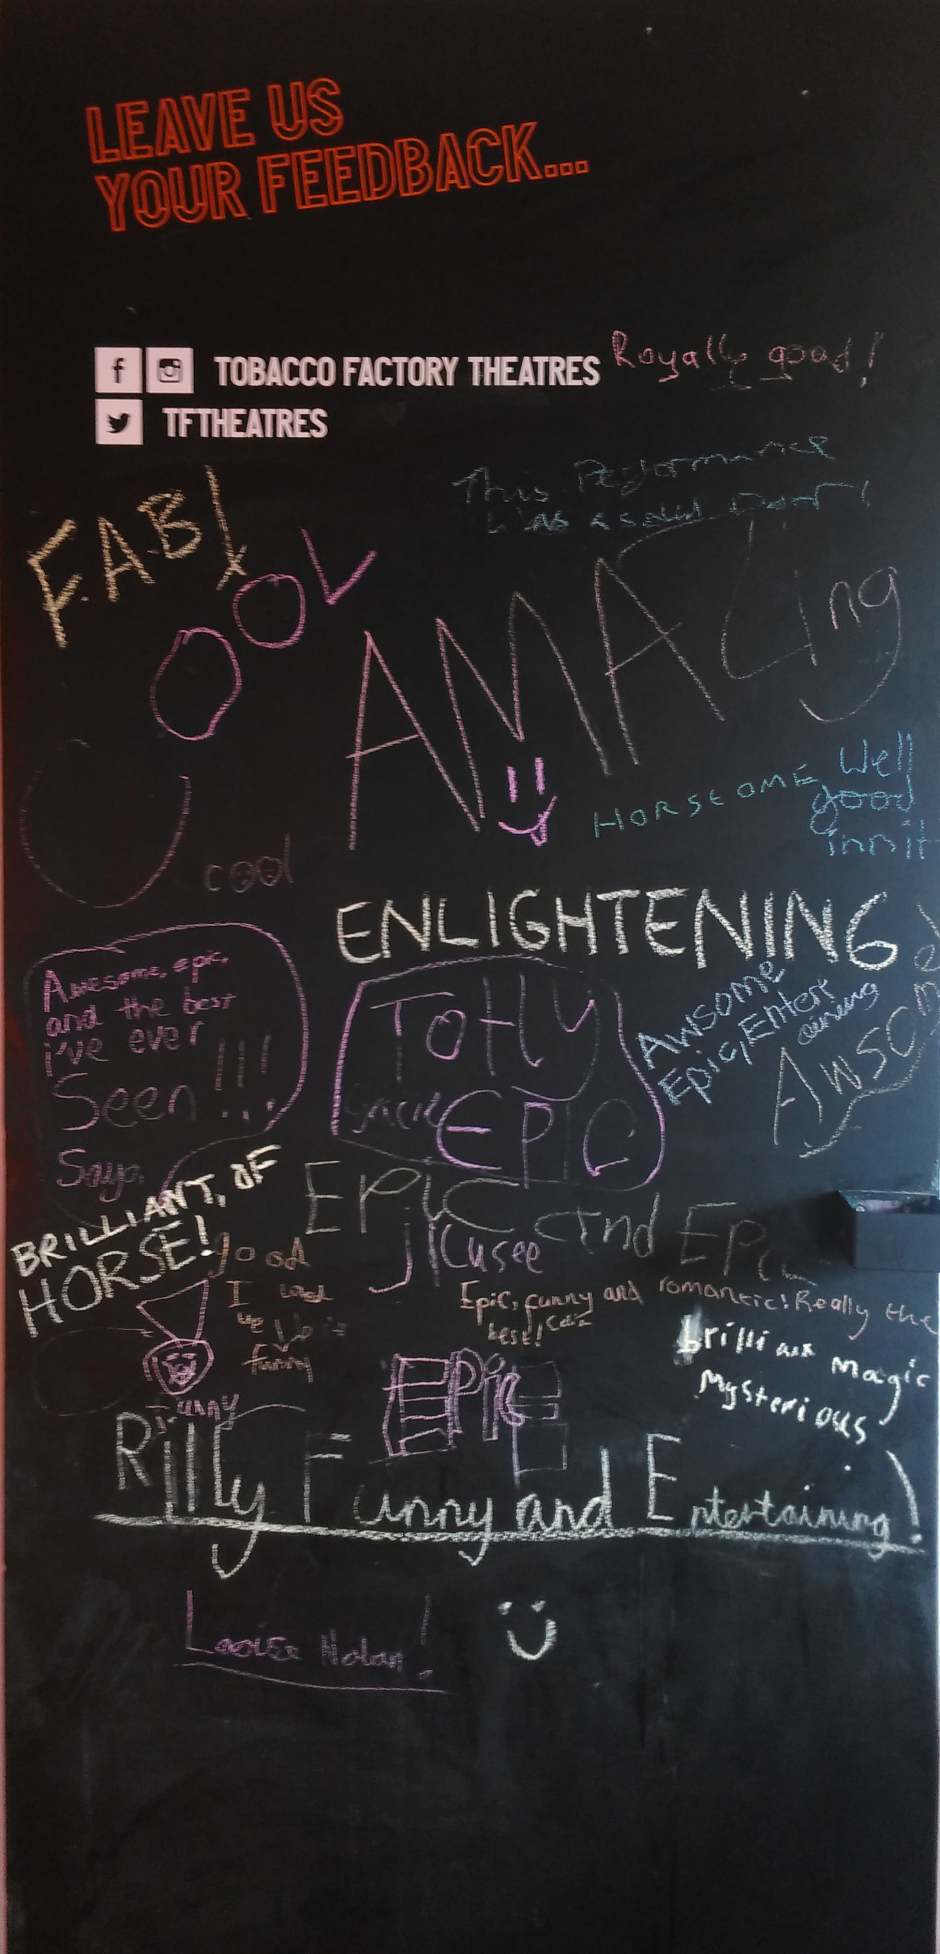 LEAVE US
YOUR FEEDBACK...
TOBACCO FACTORY THEATRES
Royally good!
TFTHEATRES
This Performance
was a solid
FAB!
COOL
AMAZing
HORSEOME
Well
good
innit
cool
ENLIGHTENING
Awesome, epic,
and the best
i've ever
Seen!!!
Says
Totly
EPIC
Awsome
Epic, Entert
aining
Awsome
BRILLIANT, OF
HORSE!
EPiC and EPic
good
I
funny
Epic, funny and romantic! Really the
best!
brilliant magic
Mysterious
Funny
EPiC
Rilly Funny and Entertaining!
Nolan!